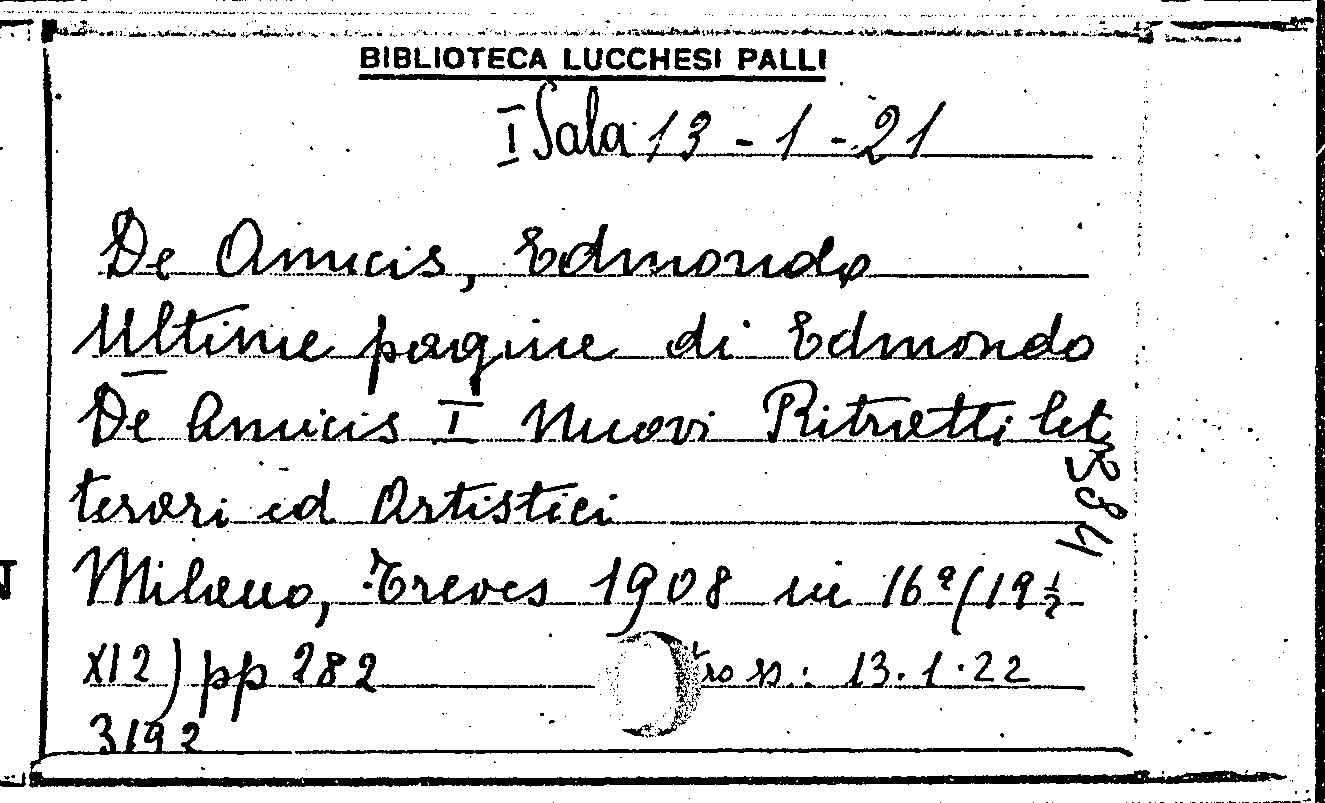 BIBLIOTECA LUCCHESI PALLI
I Sala 13-1-21
De Amicis, Edmondo
Ultime pagine di Edmondo
De Amicis I Nuovi Ritratti let
terari ed Artistici
584
Milano, Treves 1908 in 16º (19 ½
X12) pp 282 13.1.22
3192